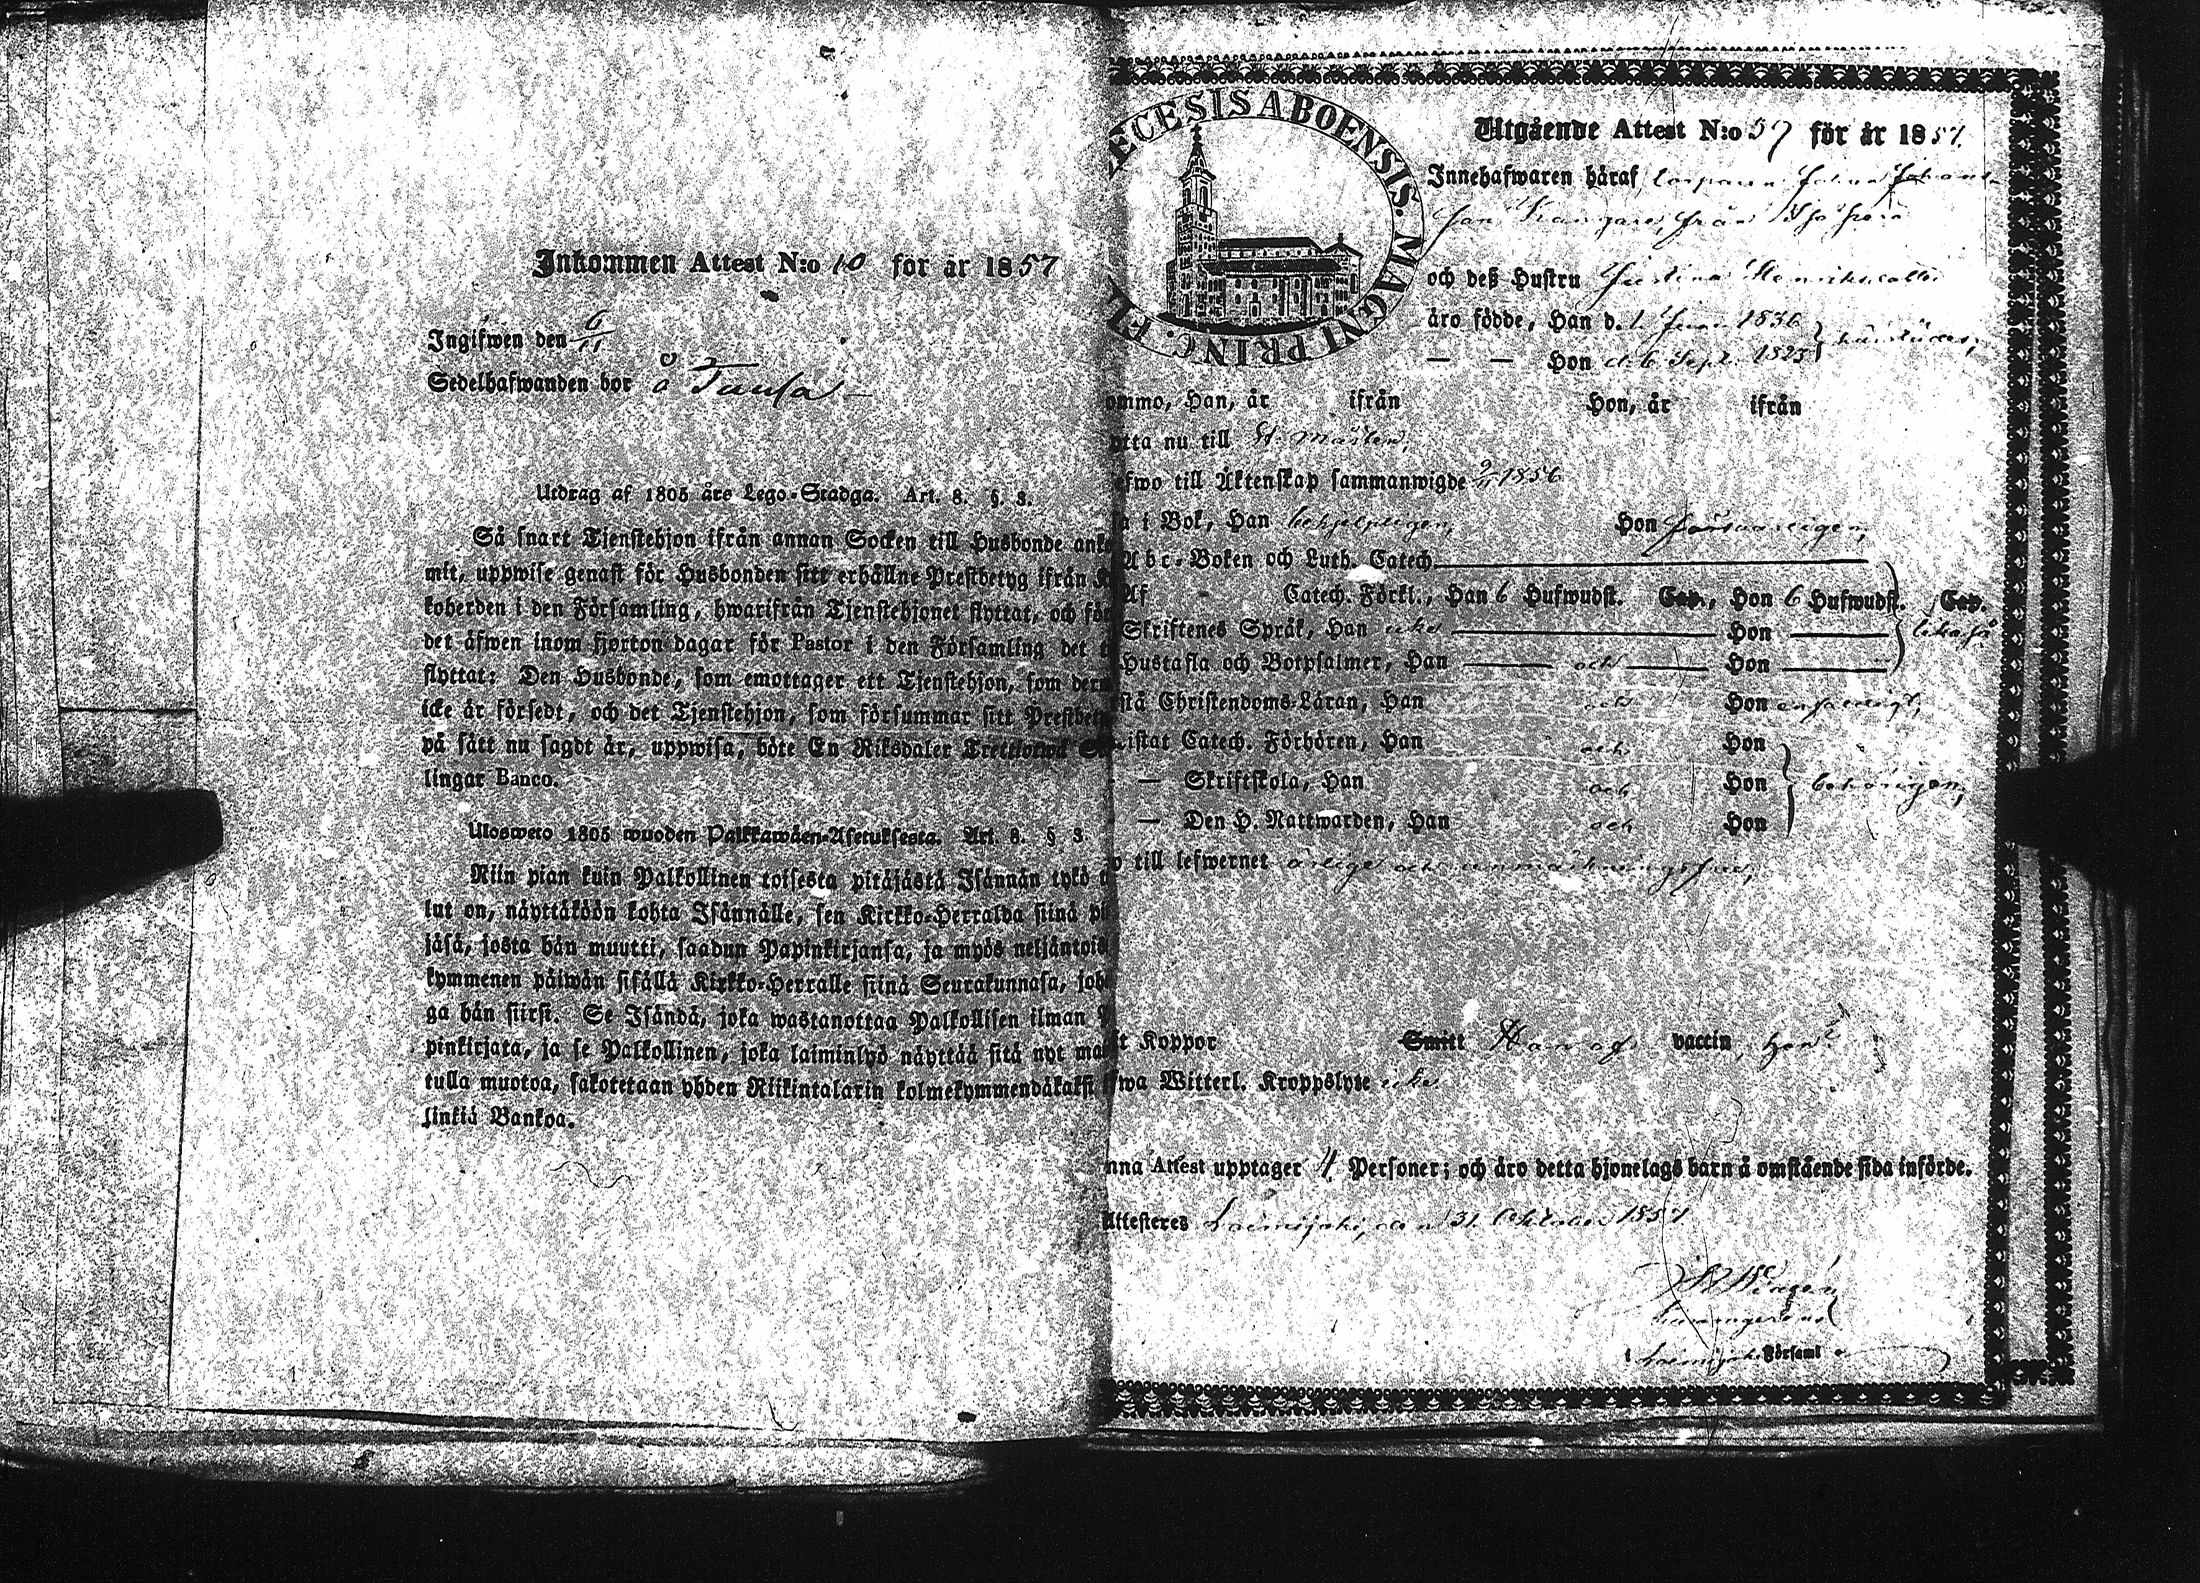 Inkommen Attest N:o 10 för år 1857
Ingifwen den 6/11
Sedelhafwanden bor å
Utdrag af 1805 års Lego-Stadga. Art. 8. §. 3.
Så snart Tjenstehjon ifrån annan Socken till Husbonde ank
mit, uppwise genast för Husbonden sitt erhållne Prestbetyg ifrån
koherden i den Församling, hwarifrån Tjenstehjonet flyttat, och fö
det äfwen inom fjorton dagar för Pastor i den Församling det
flyttat: Den Husbonde, som emottager ett Tjenstehjon, som der
icke är försedt, och det Tjenstehjon, som försummar sitt Prestbet
på sätt nu sagdt är, uppwisa, böte En Riksdaler Trettiotwå S
lingar Banco.
Ulosweto 1805 wuoden Palkkawäen-Asetuksesta. Art. 8. § 3.
Niin pian kuin Palkollinen toisesta pitäjästä Isännän tykö
lut on, näyttäköön kohta Isännälle, sen Kirkko-Herralda siinä pi
jäsä, josta hän muutti, saadun Papinkirjansa, ja myös neljäntois
kymmenen päiwän sisällä Kirkko-Herralle siinä Seurakunnasa, joh
ga hän siirst. Se Isändä, joka wastanottaa Palkollisen ilman
pinkirjata, ja se Palkollinen, joka laiminlyö näyttää sitä nyt ma
tulla muotoa, sakotetaan yhden Riikintalarin kolmekymmendäkaksi
linkiä Bankoa.
ECESIS ABOENSIS. MAGNI PRINC. FI
Utgående Attest N:o 57 för år 1857.
Innehafwaren häraf Johan
från
och deß Hustru Justina Henriksdotter
äro födde, Han d. 1 Juni 1836
— — Hon d. 6 Sept. 1823
ommo, Han, år ifrån Hon, år ifrån
ytta nu till St. Mårtens,
efwo till Äktenskap sammanwigde 9/11 1856
a i Bok, Han behjelpligen, Hon försvarligen,
Abc-Boken och Luth. Catech.
Af Catech. Förkl., Han 6 Hufwudst. Cap., Hon 6 Hufwudst. Cap.
Skriftenes Språk, Han icke Hon lika så
Hustafla och Botpsalmer, Han och Hon
stå Christendoms-Läran, Han och Hon enfaldigt,
istat Catech. Förhören, Han och Hon
— Skriftskola, Han och Hon behörigen,
— Den H. Nattwarden, Han och Hon
o till lefwernet ärlige och anmärkningsfrie,
t Koppor Smitt Han af vaccin, Hon
fwa Witterl. Kroppslyte icke
nna Attest upptager 4 Personer; och äro detta hjonelags barn å omstående sida införde.
Attesteres Loimijoki, den 31 October 1857
Loimijoki Församl